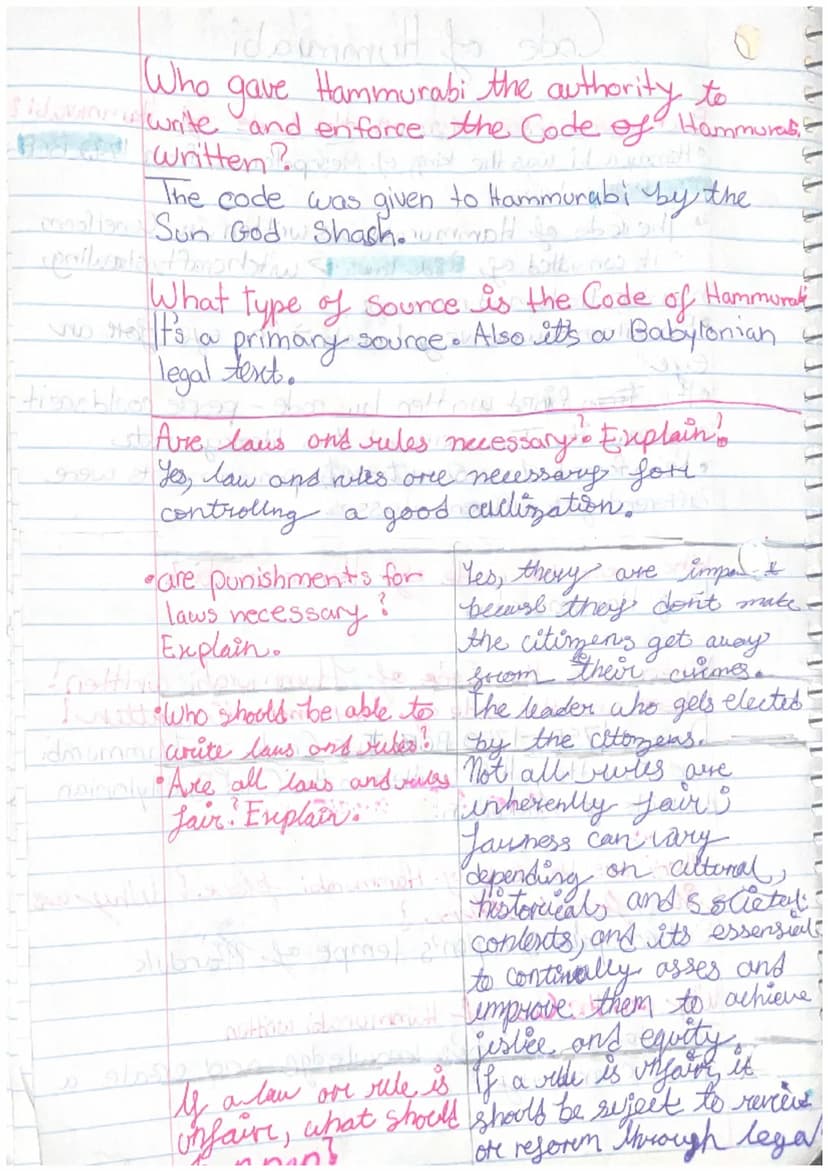 Who gave Hammurabi the authority to
write and enforce the Code of Hammurabi
written?
The code was given to Hammurabi by the
Sun God Shash.
What type of source is the Code of Hammurabi
It's a primary source. Also it's a Babylonian
legal text.
Are laws and rules necessary? Explain!
Yes, law and rules are necessary for
controlling a good civilization.
• are punishments for
laws necessary?
Explain.
Yes, they are
because they don't make
the citizens get away
from their crimes.
• Who should be able to
write laws and rules?
The leader who gets elected
by the citizens.
• Are all laws and rules
fair? Explain.
Not all rules are
inherently fair;
fairness can vary
depending on cultural,
historical, and societal
contexts, and its essential
to continually asses and
improve them to achieve
justice and equity.
If a law or rule is
unfair, what should
If a rule is unfair, it
should be suject to review
or reform through legal